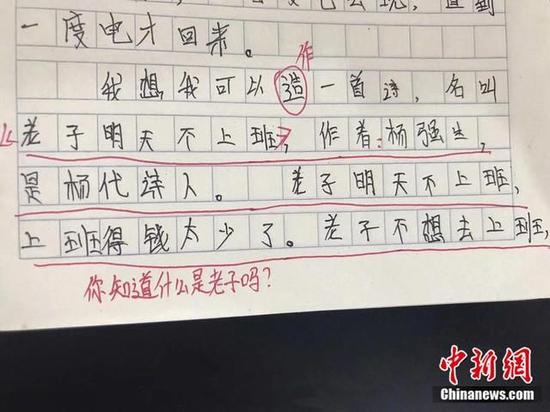 直到
一度电才回来。
作
我想我可以造一首诗，名叫
《老子明天不上班》，作者：杨强生，
是杨代诗人。 老子明天不上班，
上班得钱太少了。老子不想去上班，
你知道什么是老子吗？
中新网
Chinanews.com